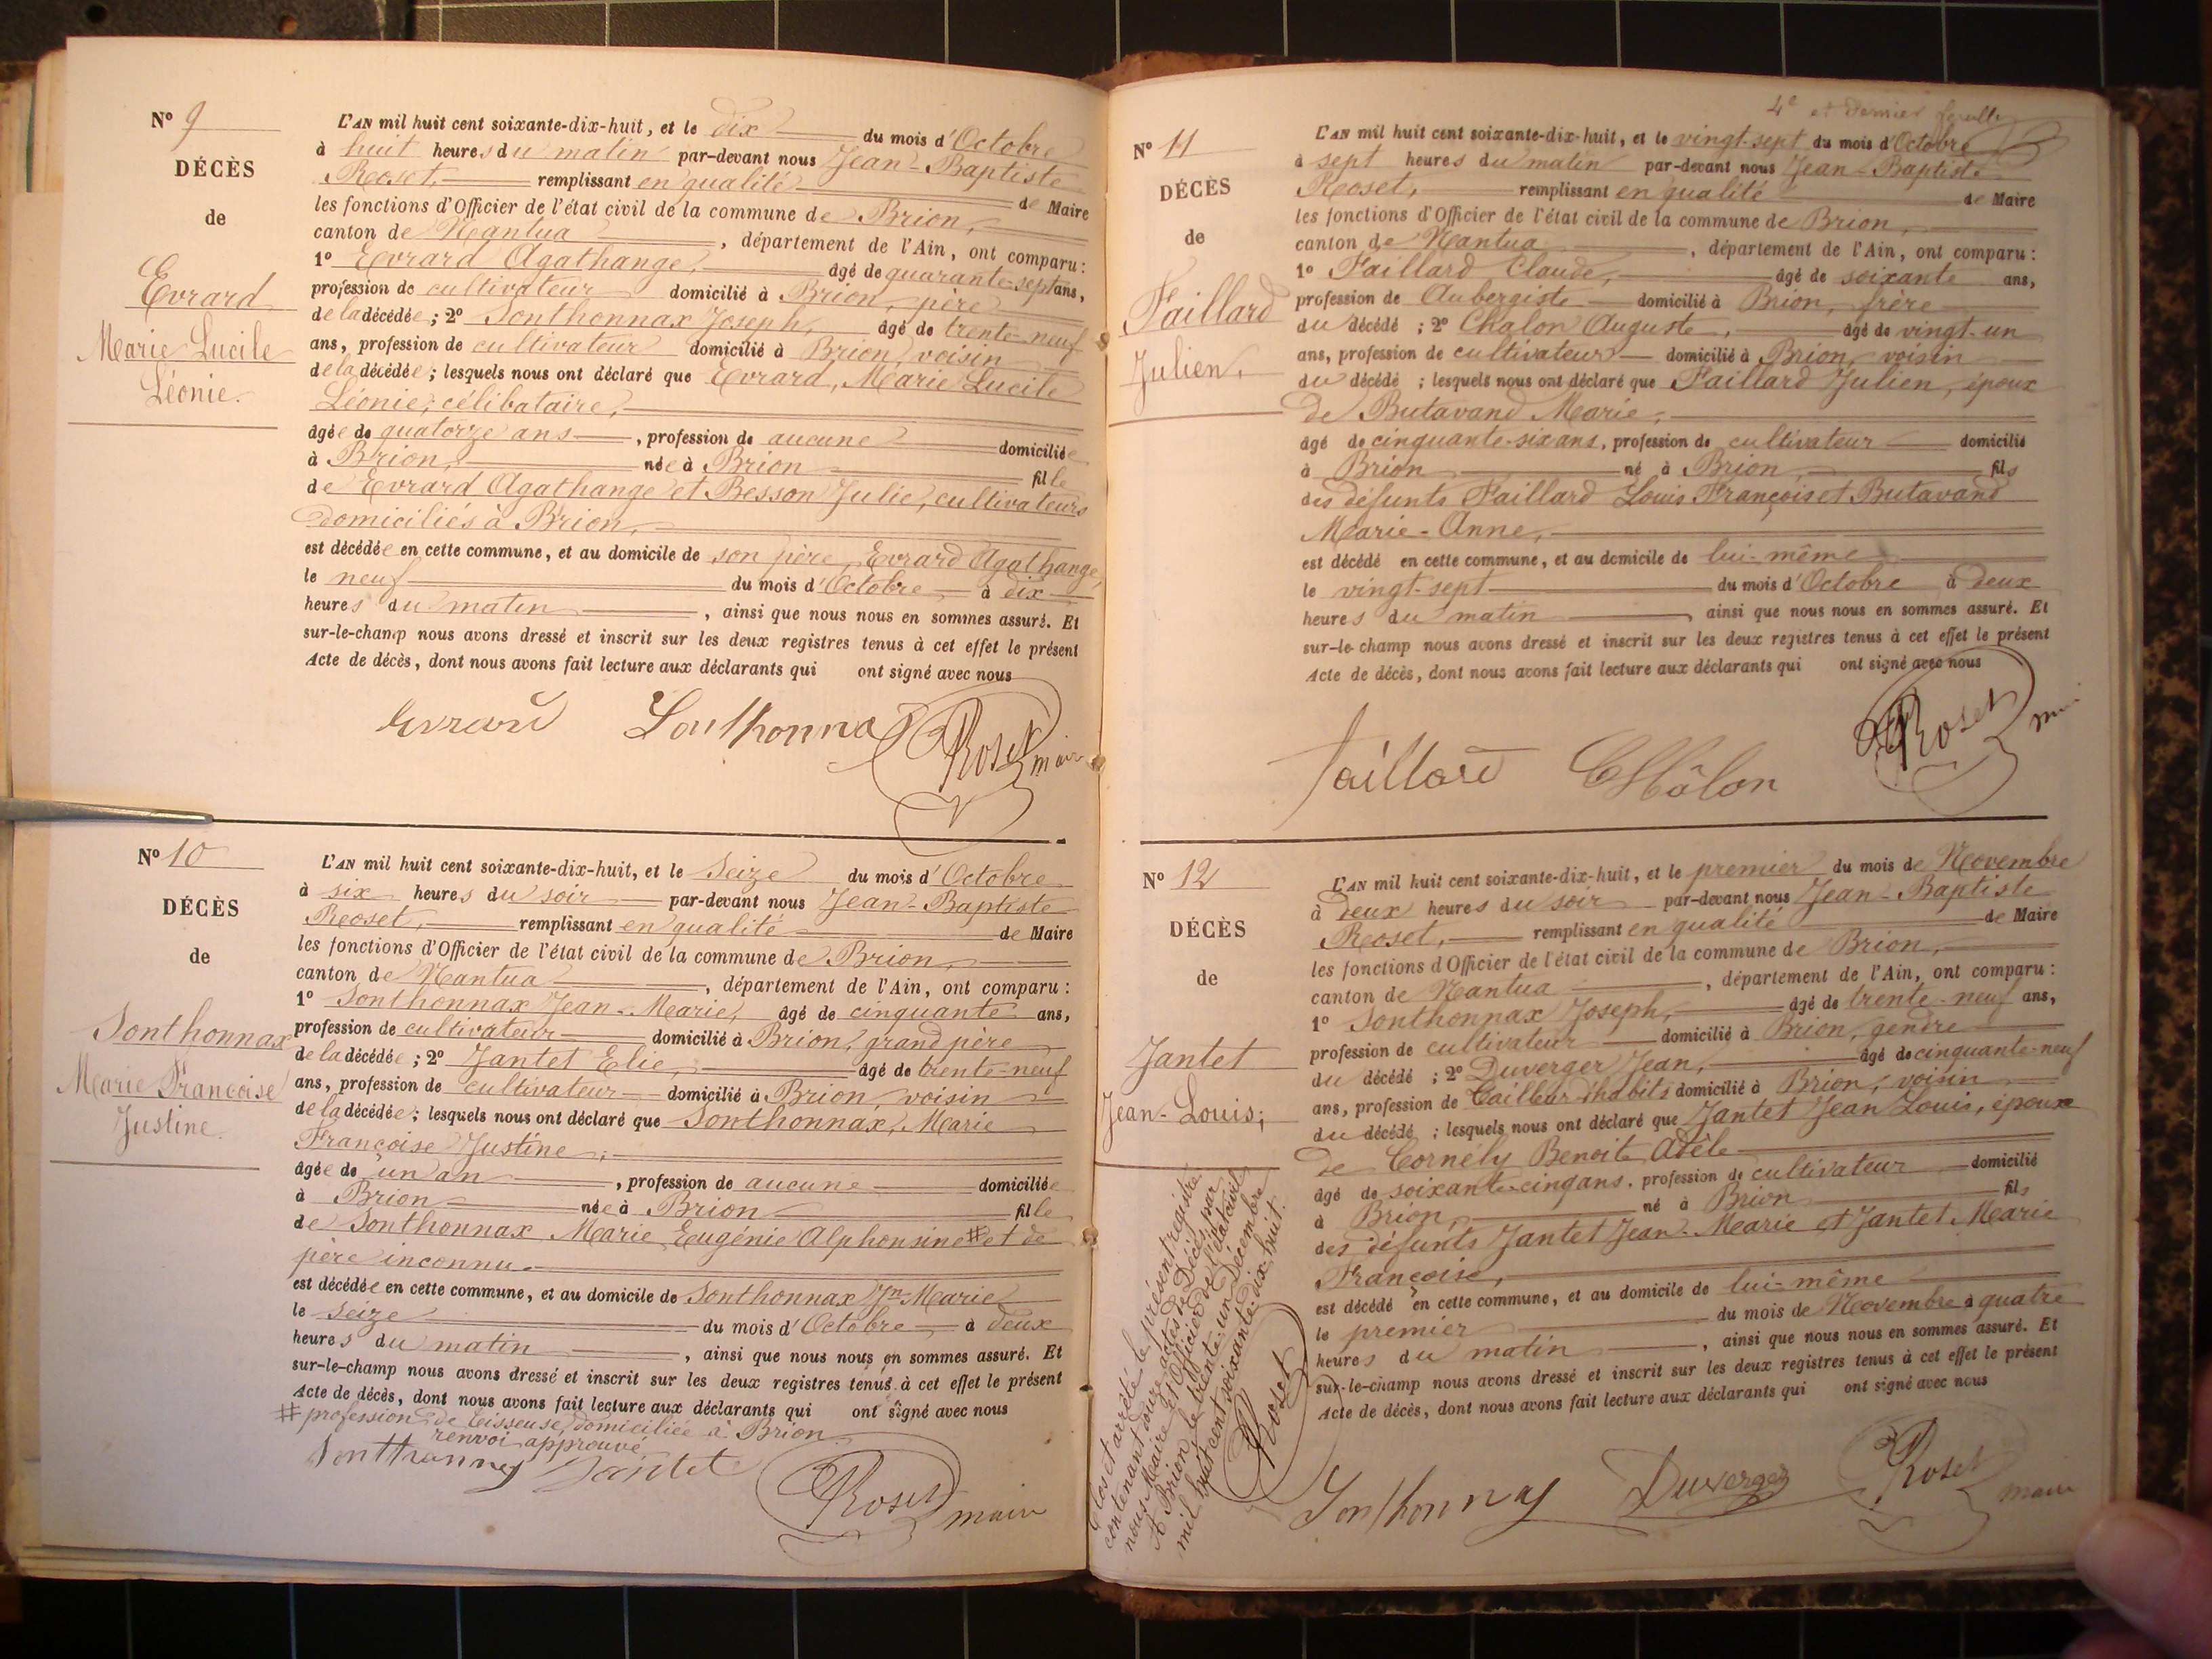 N° 9
DÉCÈS
de
Evrard
Marie Lucile
Léonie.
L'AN mil huit cent soixante-dix-huit, et le dix du mois d'Octobre
à huit heures du matin par-devant nous Jean-Baptiste
Roset, remplissant en qualité de Maire
les fonctions d'Officier de l'état civil de la commune de Brion,
canton de Nantua, département de l'Ain, ont comparu :
1° Evrard Agathange, âgé de quarante-sept ans,
profession de cultivateur domicilié à Brion, père
de la décédée ; 2° Sonthonnax Joseph, âgé de trente-neuf
ans, profession de cultivateur domicilié à Brion, voisin
de la décédée ; lesquels nous ont déclaré que Evrard, Marie Lucile
Léonie, célibataire,
âgée de quatorze ans, profession de aucune domiciliée
à Brion, née à Brion fille
de Evrard Agathange et Besson Julie, cultivateurs
domiciliés à Brion,
est décédée en cette commune, et au domicile de son père, Evrard Agathange,
le neuf du mois d'Octobre à dix
heures du matin, ainsi que nous nous en sommes assuré. Et
sur-le-champ nous avons dressé et inscrit sur les deux registres tenus à cet effet le présent
Acte de décès, dont nous avons fait lecture aux déclarants qui ont signé avec nous
Evrard Sonthonnax Roset maire
N° 10
DÉCÈS
de
Sonthonnax
Marie Françoise
Justine.
L'AN mil huit cent soixante-dix-huit, et le Seize du mois d'Octobre
à six heures du soir par-devant nous Jean-Baptiste
Roset, remplissant en qualité de Maire
les fonctions d'Officier de l'état civil de la commune de Brion,
canton de Nantua, département de l'Ain, ont comparu :
1° Sonthonnax Jean-Marie, âgé de cinquante ans,
profession de cultivateur domicilié à Brion, grand père
de la décédée ; 2° Jantet Elie, âgé de trente-neuf
ans, profession de cultivateur domicilié à Brion, voisin
de la décédée ; lesquels nous ont déclaré que Sonthonnax, Marie
Françoise Justine,
âgée de un an, profession de aucune domiciliée
à Brion née à Brion fille
de Sonthonnax Marie Eugénie Alphonsine # et de
père inconnu.
est décédée en cette commune, et au domicile de Sonthonnax Jn Marie
le seize du mois d'Octobre à deux
heures du matin, ainsi que nous nous en sommes assuré. Et
sur-le-champ nous avons dressé et inscrit sur les deux registres tenus à cet effet le présent
Acte de décès, dont nous avons fait lecture aux déclarants qui ont signé avec nous
# profession de tisseuse, domiciliée à Brion
renvoi approuvé
Sonthonnax Jantet Roset maire
4e et dernier feuillet
N° 11
DÉCÈS
de
Faillard
Julien.
L'AN mil huit cent soixante-dix-huit, et le vingt-sept du mois d'Octobre
à sept heures du matin par-devant nous Jean-Baptiste
Roset, remplissant en qualité de Maire
les fonctions d'Officier de l'état civil de la commune de Brion,
canton de Nantua, département de l'Ain, ont comparu :
1° Faillard Claude, âgé de soixante ans,
profession de Aubergiste domicilié à Brion, frère
du décédé ; 2° Chalon Auguste, âgé de vingt-un
ans, profession de cultivateur domicilié à Brion, voisin
du décédé ; lesquels nous ont déclaré que Faillard Julien, époux
de Butavand Marie,
âgé de cinquante-six ans, profession de cultivateur domicilié
à Brion né à Brion, fils
des défunts Faillard Louis François et Butavand
Marie-Anne,
est décédé en cette commune, et au domicile de lui-même
le vingt-sept du mois d'Octobre à deux
heures du matin, ainsi que nous nous en sommes assuré. Et
sur-le-champ nous avons dressé et inscrit sur les deux registres tenus à cet effet le présent
Acte de décès, dont nous avons fait lecture aux déclarants qui ont signé avec nous
Faillard Châlon Roset
N° 12
DÉCÈS
de
Jantet
Jean-Louis,
L'AN mil huit cent soixante-dix-huit, et le premier du mois de Novembre
à deux heures du soir par-devant nous Jean-Baptiste
Roset, remplissant en qualité de Maire
les fonctions d'Officier de l'état civil de la commune de Brion,
canton de Nantua, département de l'Ain, ont comparu :
1° Sonthonnax Joseph, âgé de trente-neuf ans,
profession de cultivateur domicilié à Brion, gendre
du décédé ; 2° Duverger Jean, âgé de cinquante-neuf
ans, profession de Tailleur d'habits domicilié à Brion, voisin
du décédé ; lesquels nous ont déclaré que Jantet Jean Louis, époux
de Cornély Benoite Adèle
âgé de soixante-cinq ans, profession de cultivateur domicilié
à Brion, né à Brion fils
des défunts Jantet Jean-Marie et Jantet Marie
Françoise,
est décédé en cette commune, et au domicile de lui-même
le premier du mois de Novembre à quatre
heures du matin, ainsi que nous nous en sommes assuré. Et
sur-le-champ nous avons dressé et inscrit sur les deux registres tenus à cet effet le présent
Acte de décès, dont nous avons fait lecture aux déclarants qui ont signé avec nous
Sonthonnax Duverger Roset maire
Clos et arrêté le présent registre
contenant douze actes de Décès, par
nous Maire et Officier de l'état civil
A Brion le trente-un Décembre
mil huit cent soixante-dix-huit.
Roset